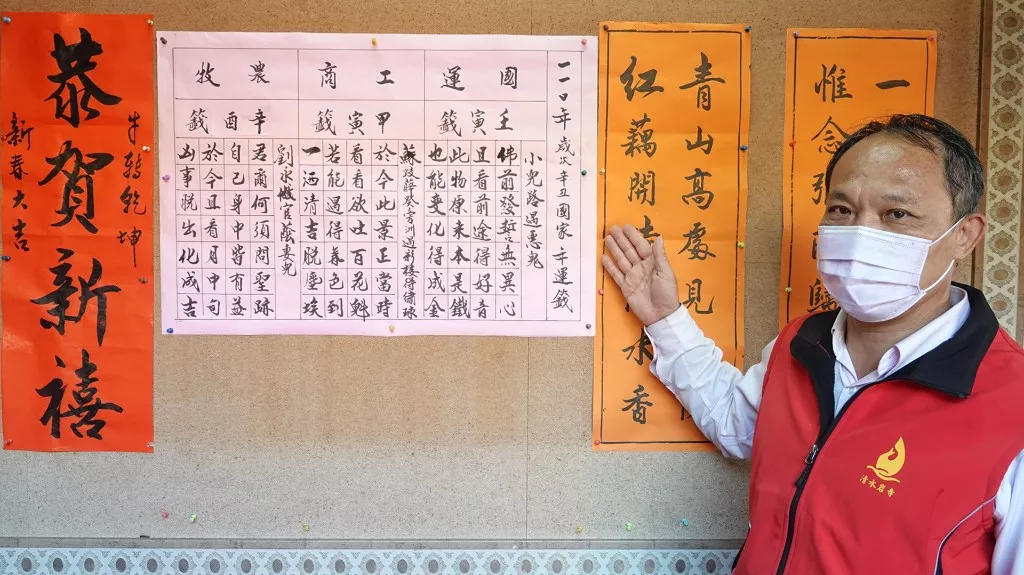 恭賀新禧
牛轉乾坤
新春大吉
一一〇年歲次辛丑國家一年運籤
國運
壬寅籤
小兒路遇惡鬼
佛前發誓無異心
且看前途得好音
此物原來本是鐵
也能變化得成金
工商
甲寅籤
彩樓得繡球
於今此景正當時
看看欲吐百花魁
若能遇得春色到
一洒清吉脫塵埃
農牧
辛酉籤
劉永做官蔭妻兒
君爾何須問聖跡
自己身中皆有益
於今且看月中旬
凶事脫出化成吉
青山高處見
紅藕開水香
一
惟念
清水岩寺